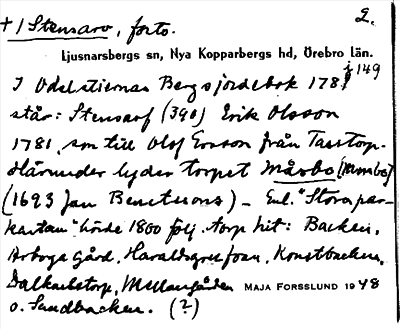 + / Stensarv, forts. 2.
Ljusnarsbergs sn, Nya Kopparbergs hd, Örebro län.
I Odelstiernas Bergsjordebok 178 § 149
står: Stensarf (390) Erik Olsson
1781, son till Olof Ersson från Taxtorp.
Härunder lyder torpet Måsbo
(1693 Jan Bengtssons) – Enl. "Storapar-
kartan" hörde 1800 följ. torp hit: Backen,
Arboga gård, Haraldsgruvan, Konstbacken,
Dalkarlstorp, Mellangården MAJA FORSSLUND 1948
o. Sandbacken. (?)